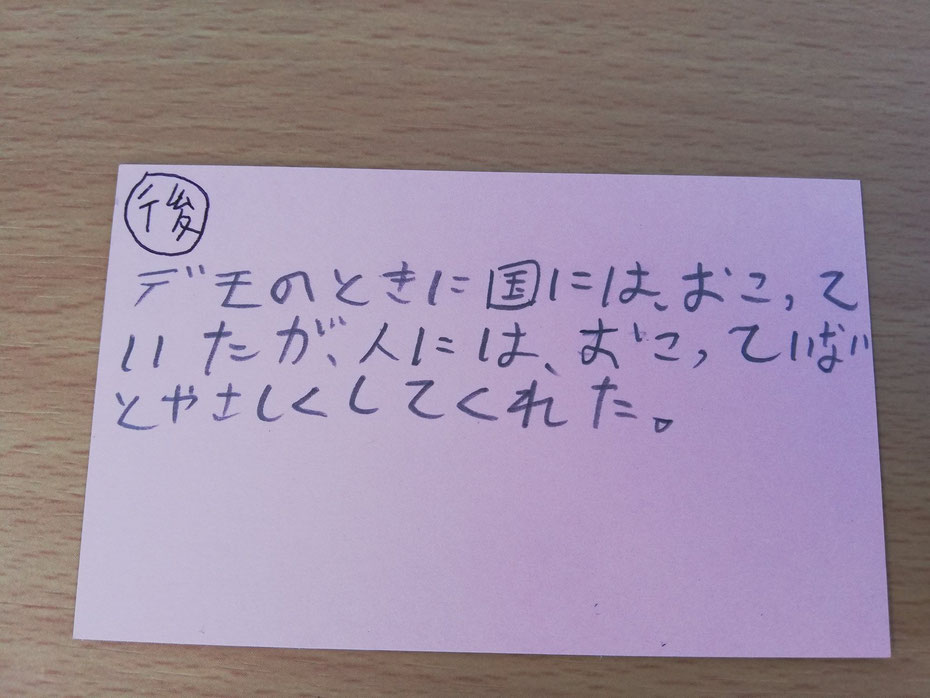 後
デモのときに国には、おこって
いたが、人には、おこっていない
とやさしくしてくれた。